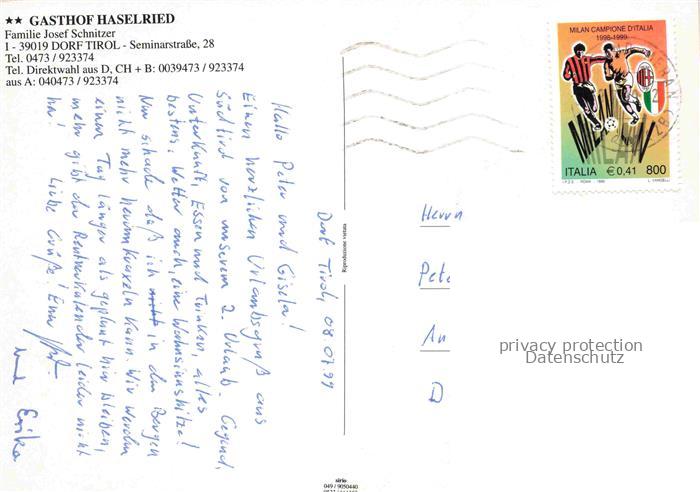 ★★ GASTHOF HASELRIED
Familie Josef Schnitzer
I - 39019 DORF TIROL - Seminarstraße, 28
Tel. 0473 / 923374
Tel. Direktwahl aus D, CH + B: 0039473 / 923374
aus A: 040473 / 923374
Dorf Tirol, 08.07.99
Hallo Peter und Gisela!
Einen herzlichen Urlaubsgruß aus
Südtirol von unserem 2. Urlaub. Gegend,
Unterkunft, Essen und Trinken, alles
bestens. Wetter auch, eine Wahnsinnshitze!
Nur schade daß ich nicht in den Bergen
nicht mehr herumkraxeln kann. Wir werden
einen Tag länger als geplant hier bleiben,
mehr gibt der Rentnerkalender leider nicht
her! Liebe Grüße! Euer
und Erika
Reproduzione vietata
sirio
049 / 9050440
MILAN CAMPIONE D'ITALIA
1998-1999
MILAN
ITALIA € 0,41 800
I.P.Z.S. ROMA 1999
MERAN
Herrn
Pete
An
D
privacy protection
Datenschutz